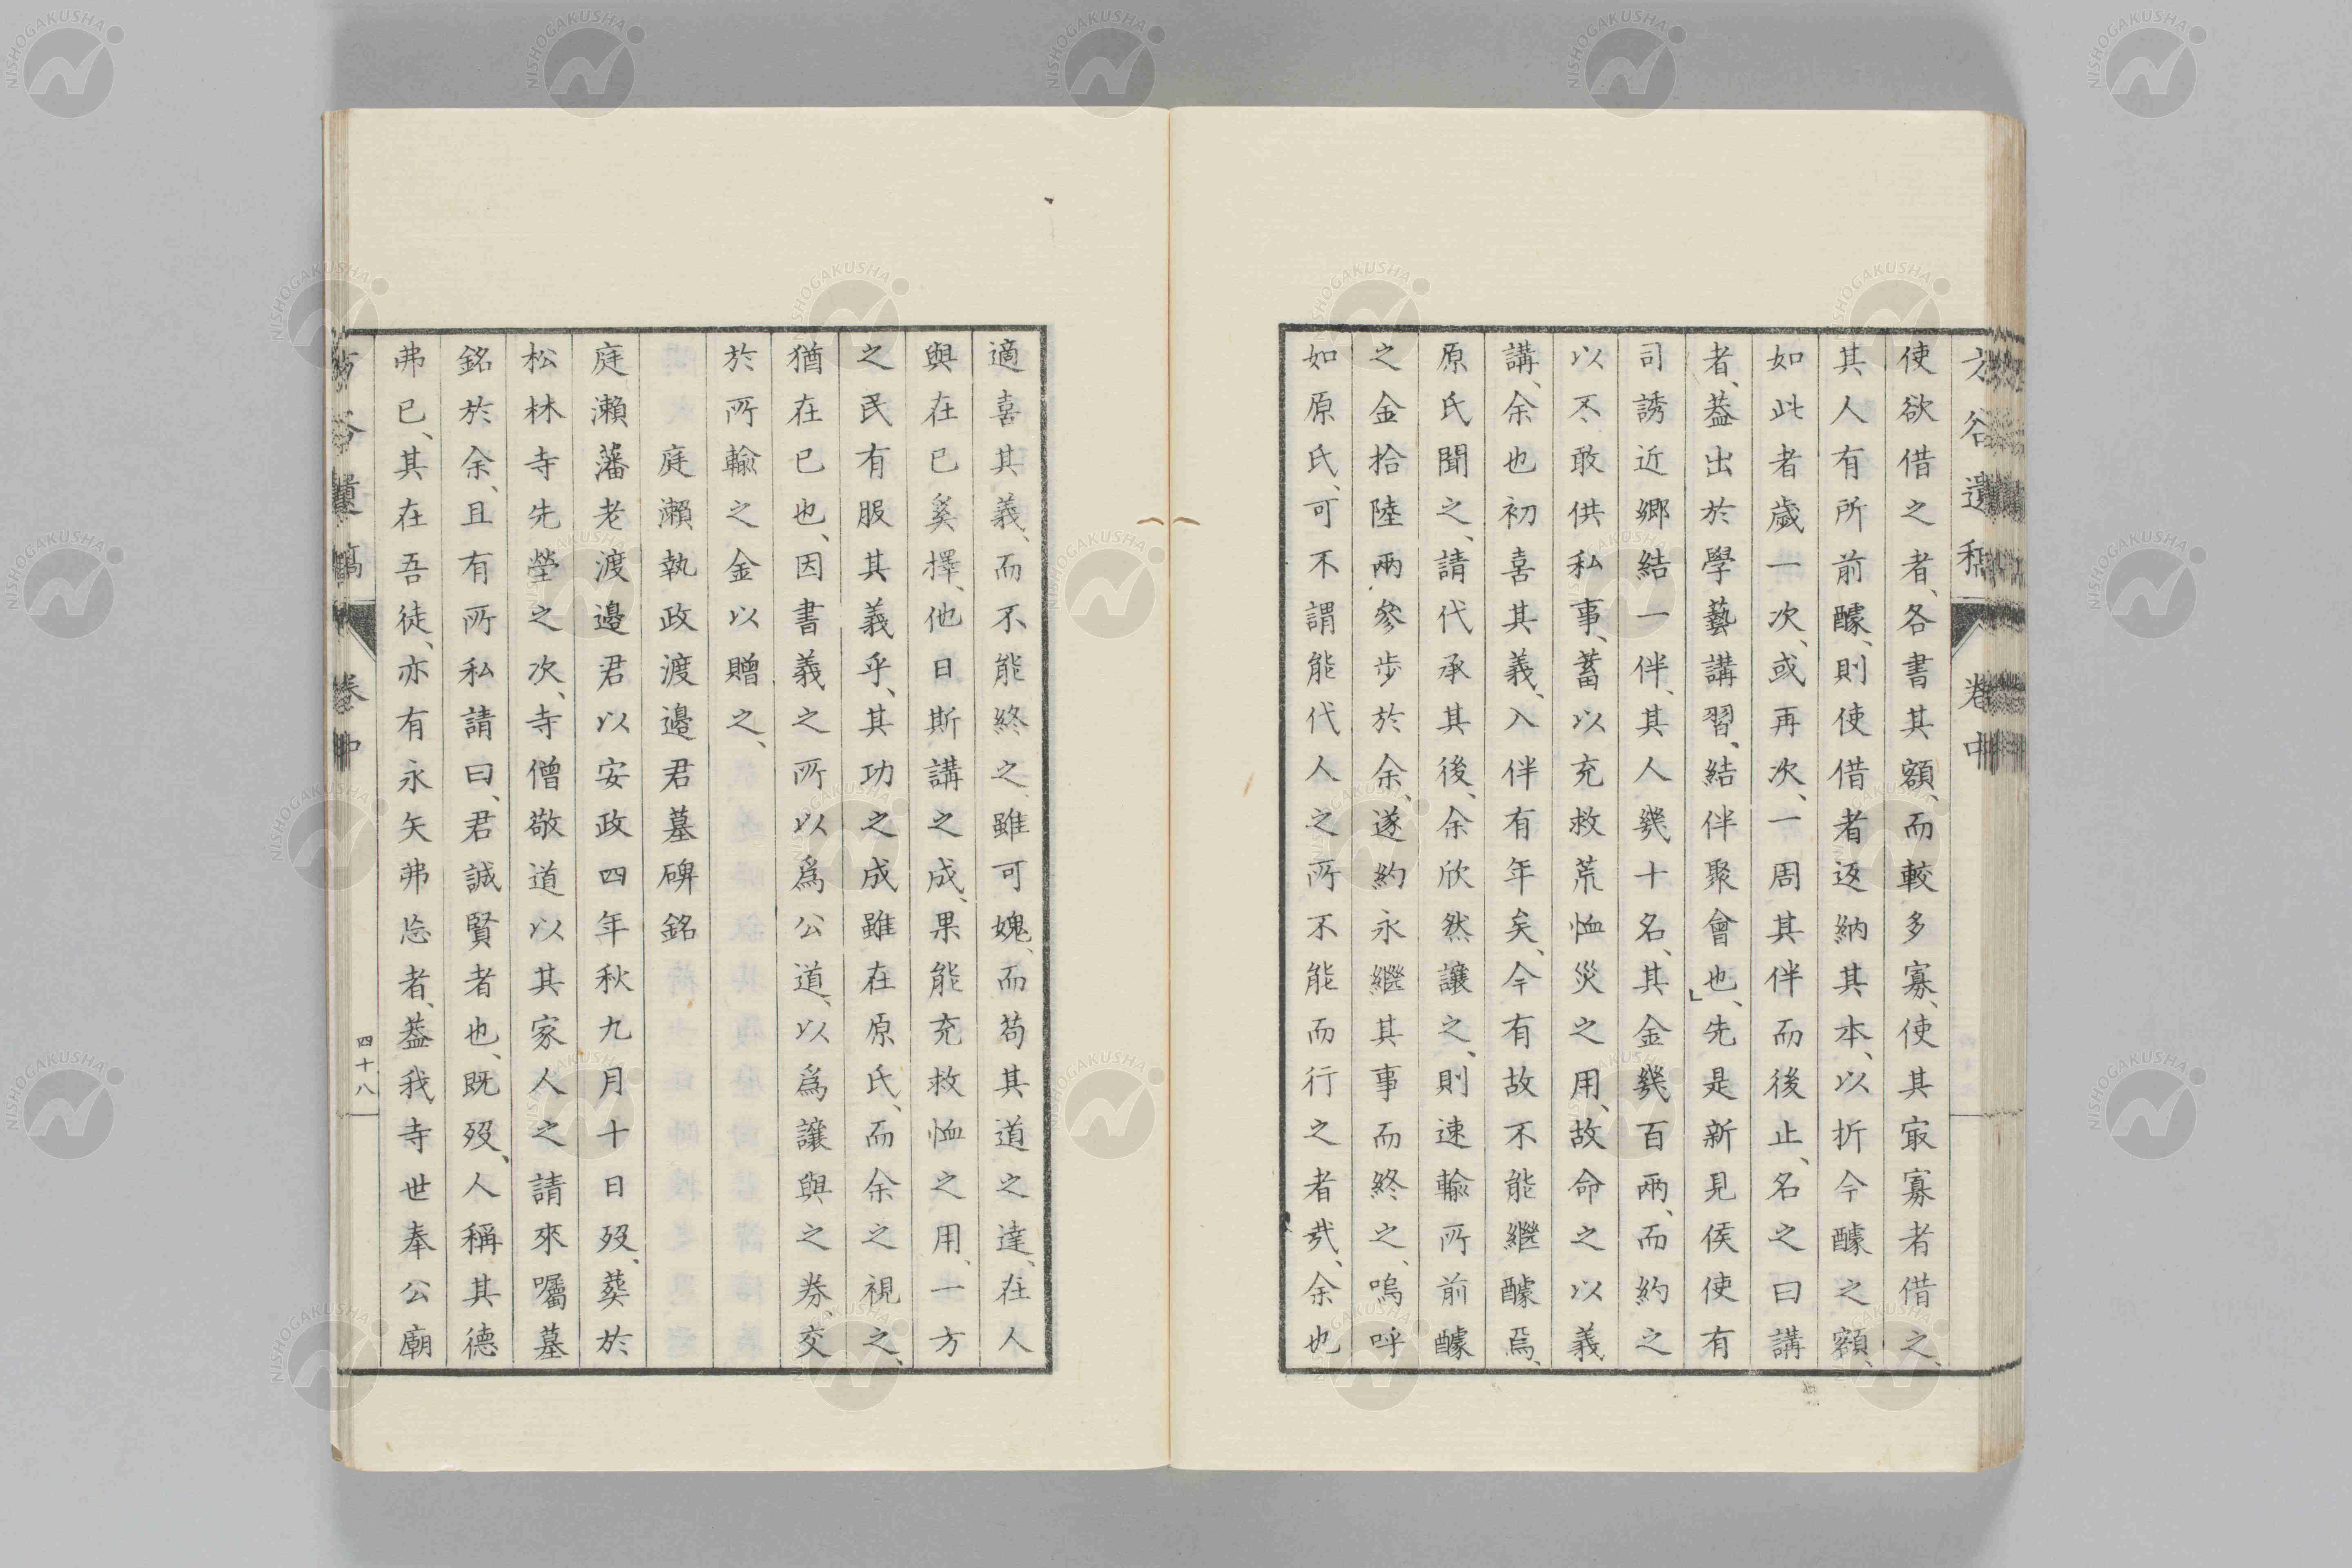 方谷遺稿 卷中
使欲借之者、各書其額、而較多寡、使其㝡寡者借之、
其人有所前醵、則使借者返納其本、以折今醵之額、
如此者歲一次、或再次、一周其伴而後止、名之曰講
者、葢出於學藝講習、結伴聚會也、」先是新見侯使有
司誘近鄉結一伴、其人幾十名、其金幾百兩、而約之
以不敢供私事、蓄以充救荒恤災之用、故命之以義
講、余也初喜其義、入伴有年矣、今有故不能繼醵焉、
原氏聞之、請代承其後、余欣然讓之、則速輸所前醵
之金拾陸兩、參步於余、遂約永繼其事而終之、嗚呼
如原氏、可不謂能代人之所不能而行之者哉、余也
適喜其義、而不能終之、雖可媿、而苟其道之達、在人
與在已奚擇、他日斯講之成、果能充救恤之用、一方
之民有服其義乎、其功之成雖在原氏、而余之視之、
猶在已也、因書義之所以爲公道、以爲讓與之券、交
於所輸之金以贈之、
庭瀨執政渡邉君墓碑銘
庭瀨藩老渡邉君以安政四年秋九月十日歿、葬於
松林寺先塋之次、寺僧敬道以其家人之請來囑墓
銘於余、且有所私請曰、君誠賢者也、既歿、人稱其德
弗已、其在吾徒、亦有永矢弗忘者、葢我寺世奉公廟
方谷遺稿 卷中 四十八
NISHOGAKUSHA